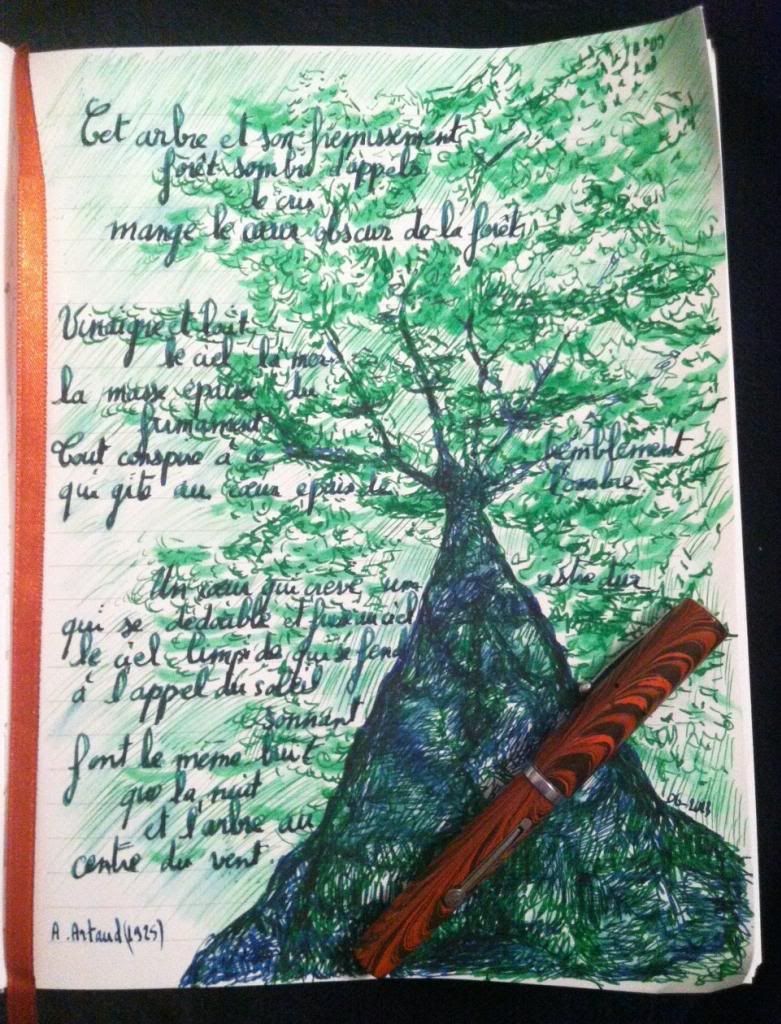 Cet arbre et son fremissement
forêt sombre d'appels
de cris
mange le cœur obscur de la forêt
Vinaigre et lait
le ciel la mer
la masse épaisse du
firmament
Tout conspire à ce tremblement
qui gite au cœur épais de l'ombre
Un cœur qui crève un astre dur
qui se dédouble et fuse au ciel
le ciel limpide qui se fend
à l'appel du soleil
sonnant
font le même bruit
que la nuit
et l'arbre au
centre du vent.
A. Artaud (1925)